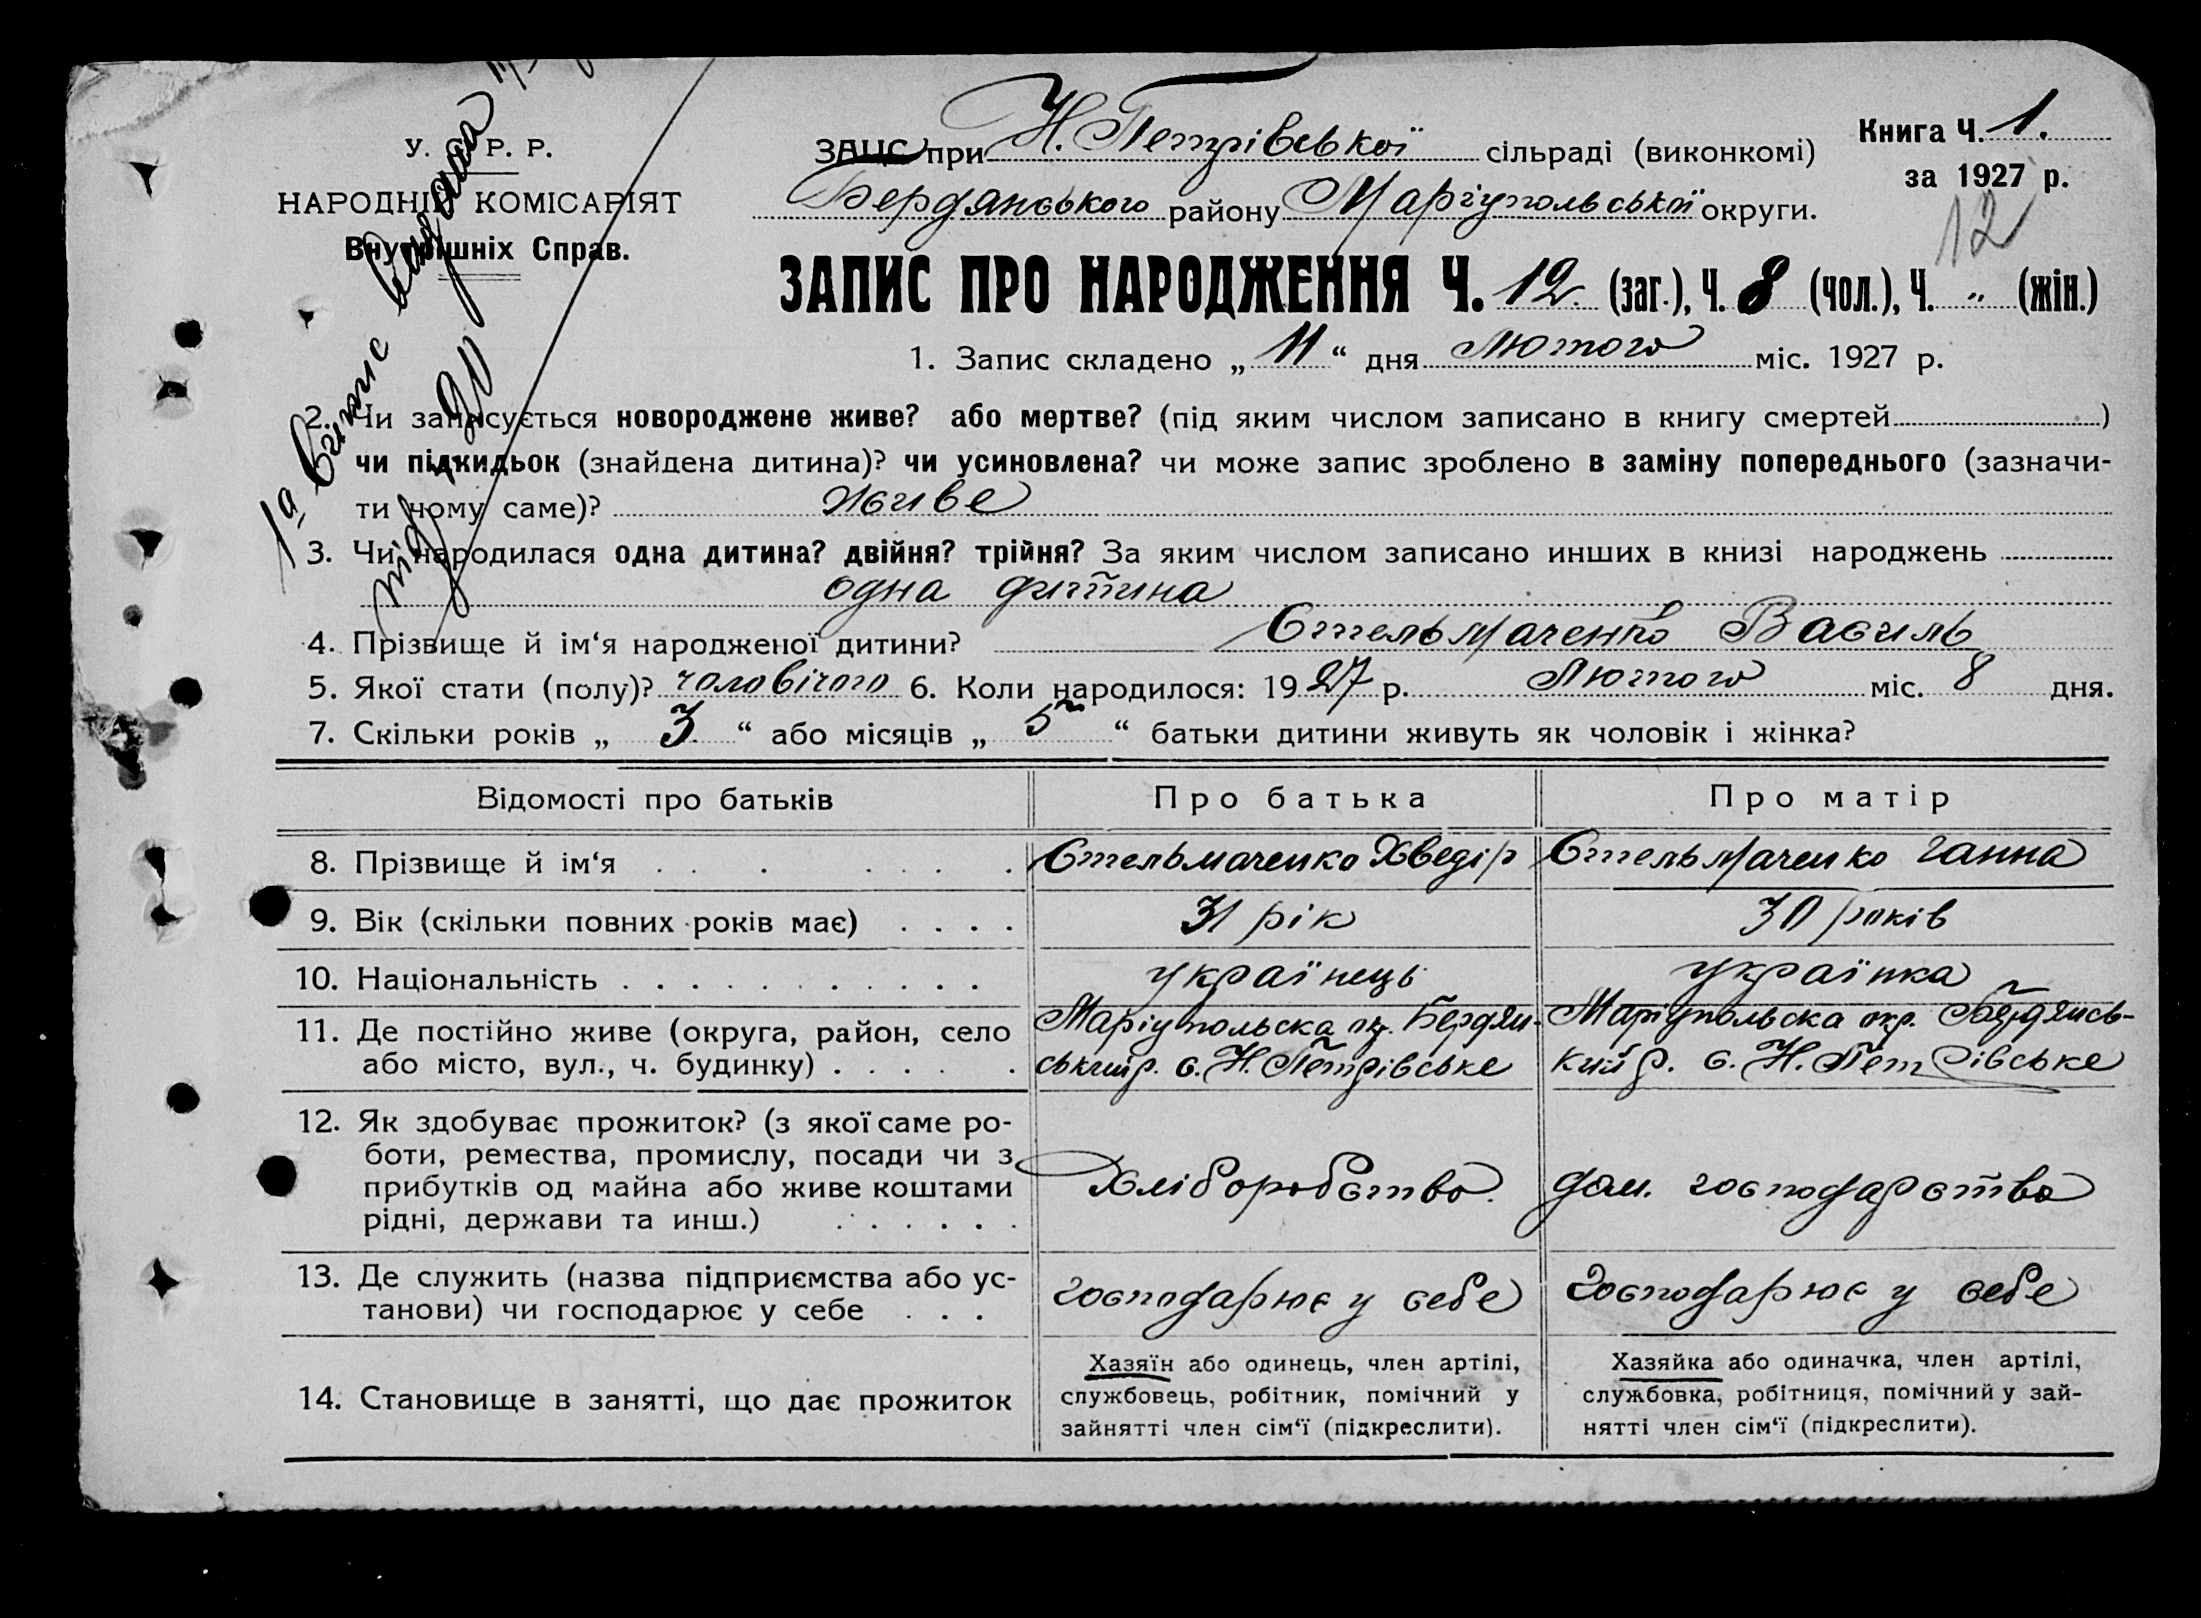 У. С. Р. Р.
НАРОДНІЙ КОМІСАРІЯТ
Внутрішніх Справ.
1а Випис видана
під № 20
ЗАЦС при Н. Петрівській сільраді (виконкомі)
Бердянського району Маріупольської округи.
Книга Ч. 1.
за 1927 р.
12
ЗАПИС ПРО НАРОДЖЕННЯ Ч. 12. (заг.), Ч. 8 (чол.), Ч. „ (жін.)
1. Запис складено „ 11 “ дня Лютого міс. 1927 р.
2. Чи записується новороджене живе? або мертве? (під яким числом записано в книгу смертей )
чи підкидьок (знайдена дитина)? чи усиновлена? чи може запис зроблено в заміну попереднього (зазначи-
ти чому саме)? живе
3. Чи народилася одна дитина? двійня? трійня? За яким числом записано инших в книзі народжень
одна дитина
4. Прізвище й ім‘я народженої дитини? Стельмаченко Василь
5. Якої стати (полу)? чоловічого 6. Коли народилося: 1927 р. Лютого міс. 8 дня.
7. Скільки років „ 3 “ або місяців „ 5 “ батьки дитини живуть як чоловік і жінка?
Відомості про батьків Про батька Про матір
8. Прізвище й ім‘я Стельмаченко Хведір Стельмаченко Ганна
9. Вік (скільки повних років має) 31 рік 30 років
10. Національність українець українка
11. Де постійно живе (округа, район, село Маріупольска окр. Бердян- Маріупольска окр. Бердянсь-
або місто, вул., ч. будинку) ський р. с. Н. Петрівське кий р. с. Н. Петрівське
12. Як здобуває прожиток? (з якої саме ро-
боти, ремества, промислу, посади чи з
прибутків од майна або живе коштами Хліборобство. дом. господарство
рідні, держави та инш.)
13. Де служить (назва підприємства або ус-
танови) чи господарює у себе господарює у себе господарює у себе
14. Становище в занятті, що дає прожиток
Хазяїн або одинець, член артілі,
службовець, робітник, помічний у
зайнятті член сім‘ї (підкреслити).
Хазяйка або одиначка, член артілі,
службовка, робітниця, помічний у зай-
нятті член сім‘ї (підкреслити).